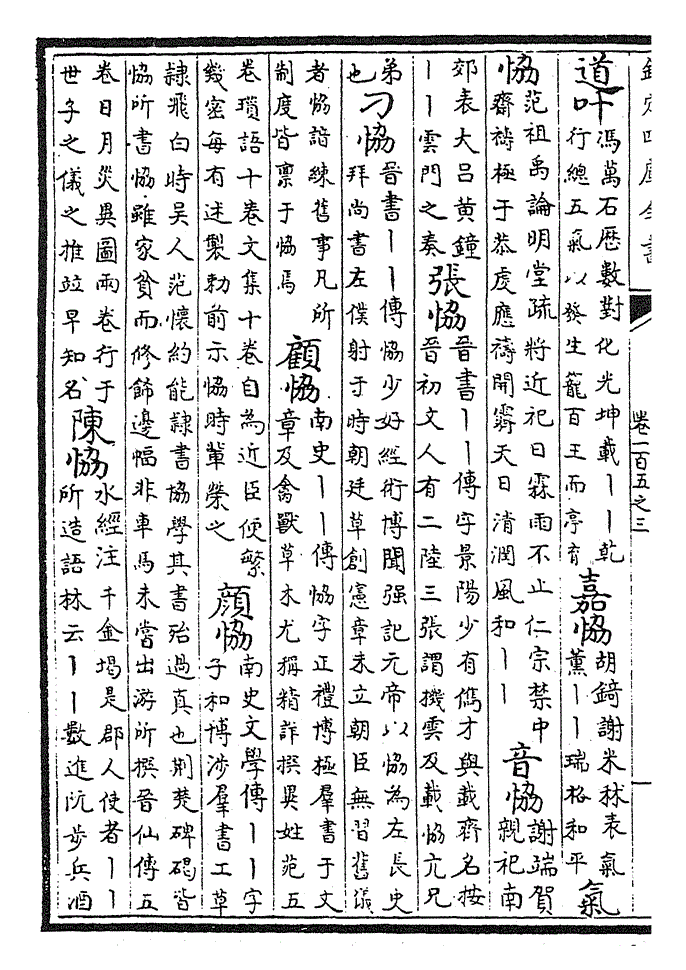 欽定四庫全書
卷一百五之三
道叶 馮萬石厯數對化光坤載丨丨乾
行總五氣以發生籠百王而亭育
嘉恊 胡錡謝米秫表氣
薫丨丨瑞格和平
氣
恊 范祖禹論明堂疏將近祀日霖雨不止仁宗禁中
齋禱極于恭虔應禱開霽天日清潤風和丨丨
音恊 謝端賀
親祀南
郊表大吕黄鐘
丨丨雲門之奏
張恊 晉書丨丨傳字景陽少有儁才與載齊名按
晉初文人有二陸三張謂機雲及載恊亢兄
弟
也
刁恊 晉書丨丨傳恊少好經術博聞强記元帝以恊為左長史
拜尚書左僕射于時朝廷草創憲章未立朝臣無習舊儀
者恊諳練舊事凡所
制度皆禀于恊焉
顧恊 南史丨丨傳恊字正禮博極羣書于文
章及禽獸草木尤稱精詳撰異姓苑五
卷瑣語十卷文集十卷自為近臣便繁
幾密每有述製勅前示恊時輩榮之
顔恊 南史文學傳丨丨字
子和博渉羣書工草
隷飛白時吴人范懷約能隷書協學其書殆過真也荆楚碑碣皆
恊所書恊雖家貧而修飾邊幅非車馬未嘗出游所撰晉仙傳五
卷日月災異圖兩卷行于
世子之儀之推竝早知名
陳恊 水經注千金堨是郡人使者丨丨
所造語林云丨丨數進阮步兵酒